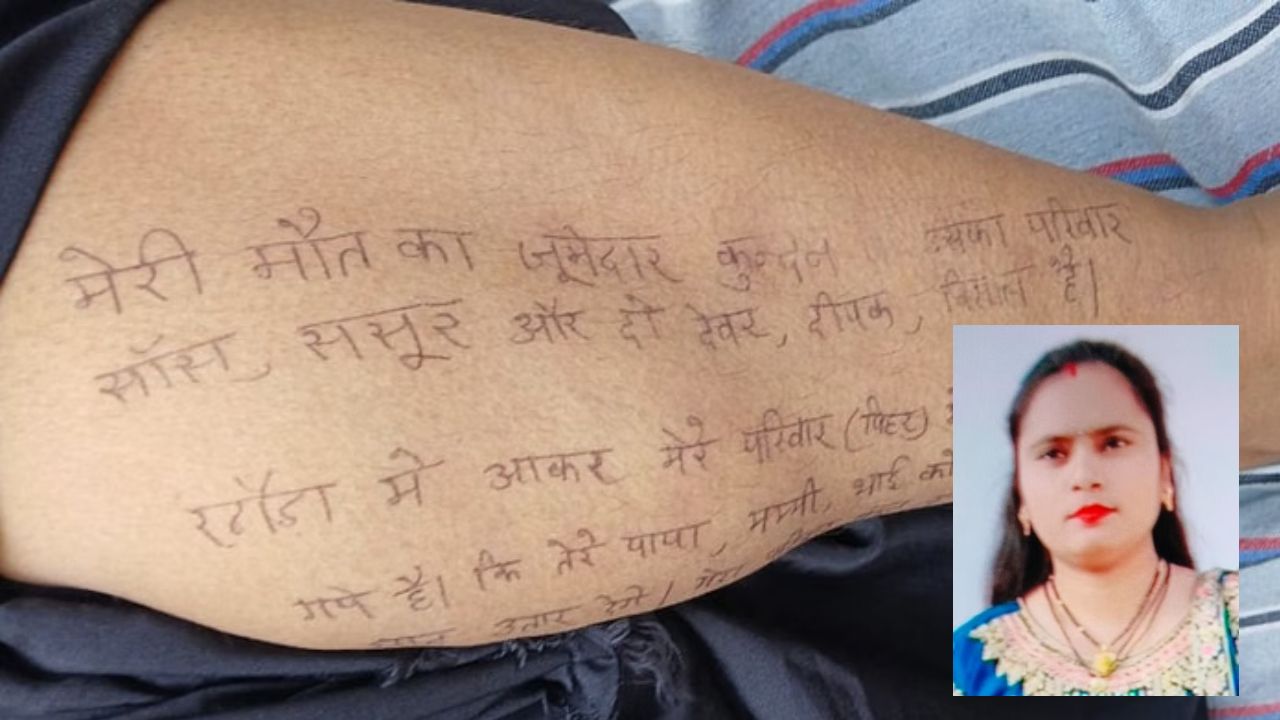 मेरी मौत का जूमेदार कुन्दन उसका परिवार
साँस, ससूर और दो देवर, दीपक, विशाल है।
रटौंडा मे आकर मेरे परिवार (पिहर)
गये है। कि तेरे पापा, मम्मी, भाई को
उतार देगे। मेरा